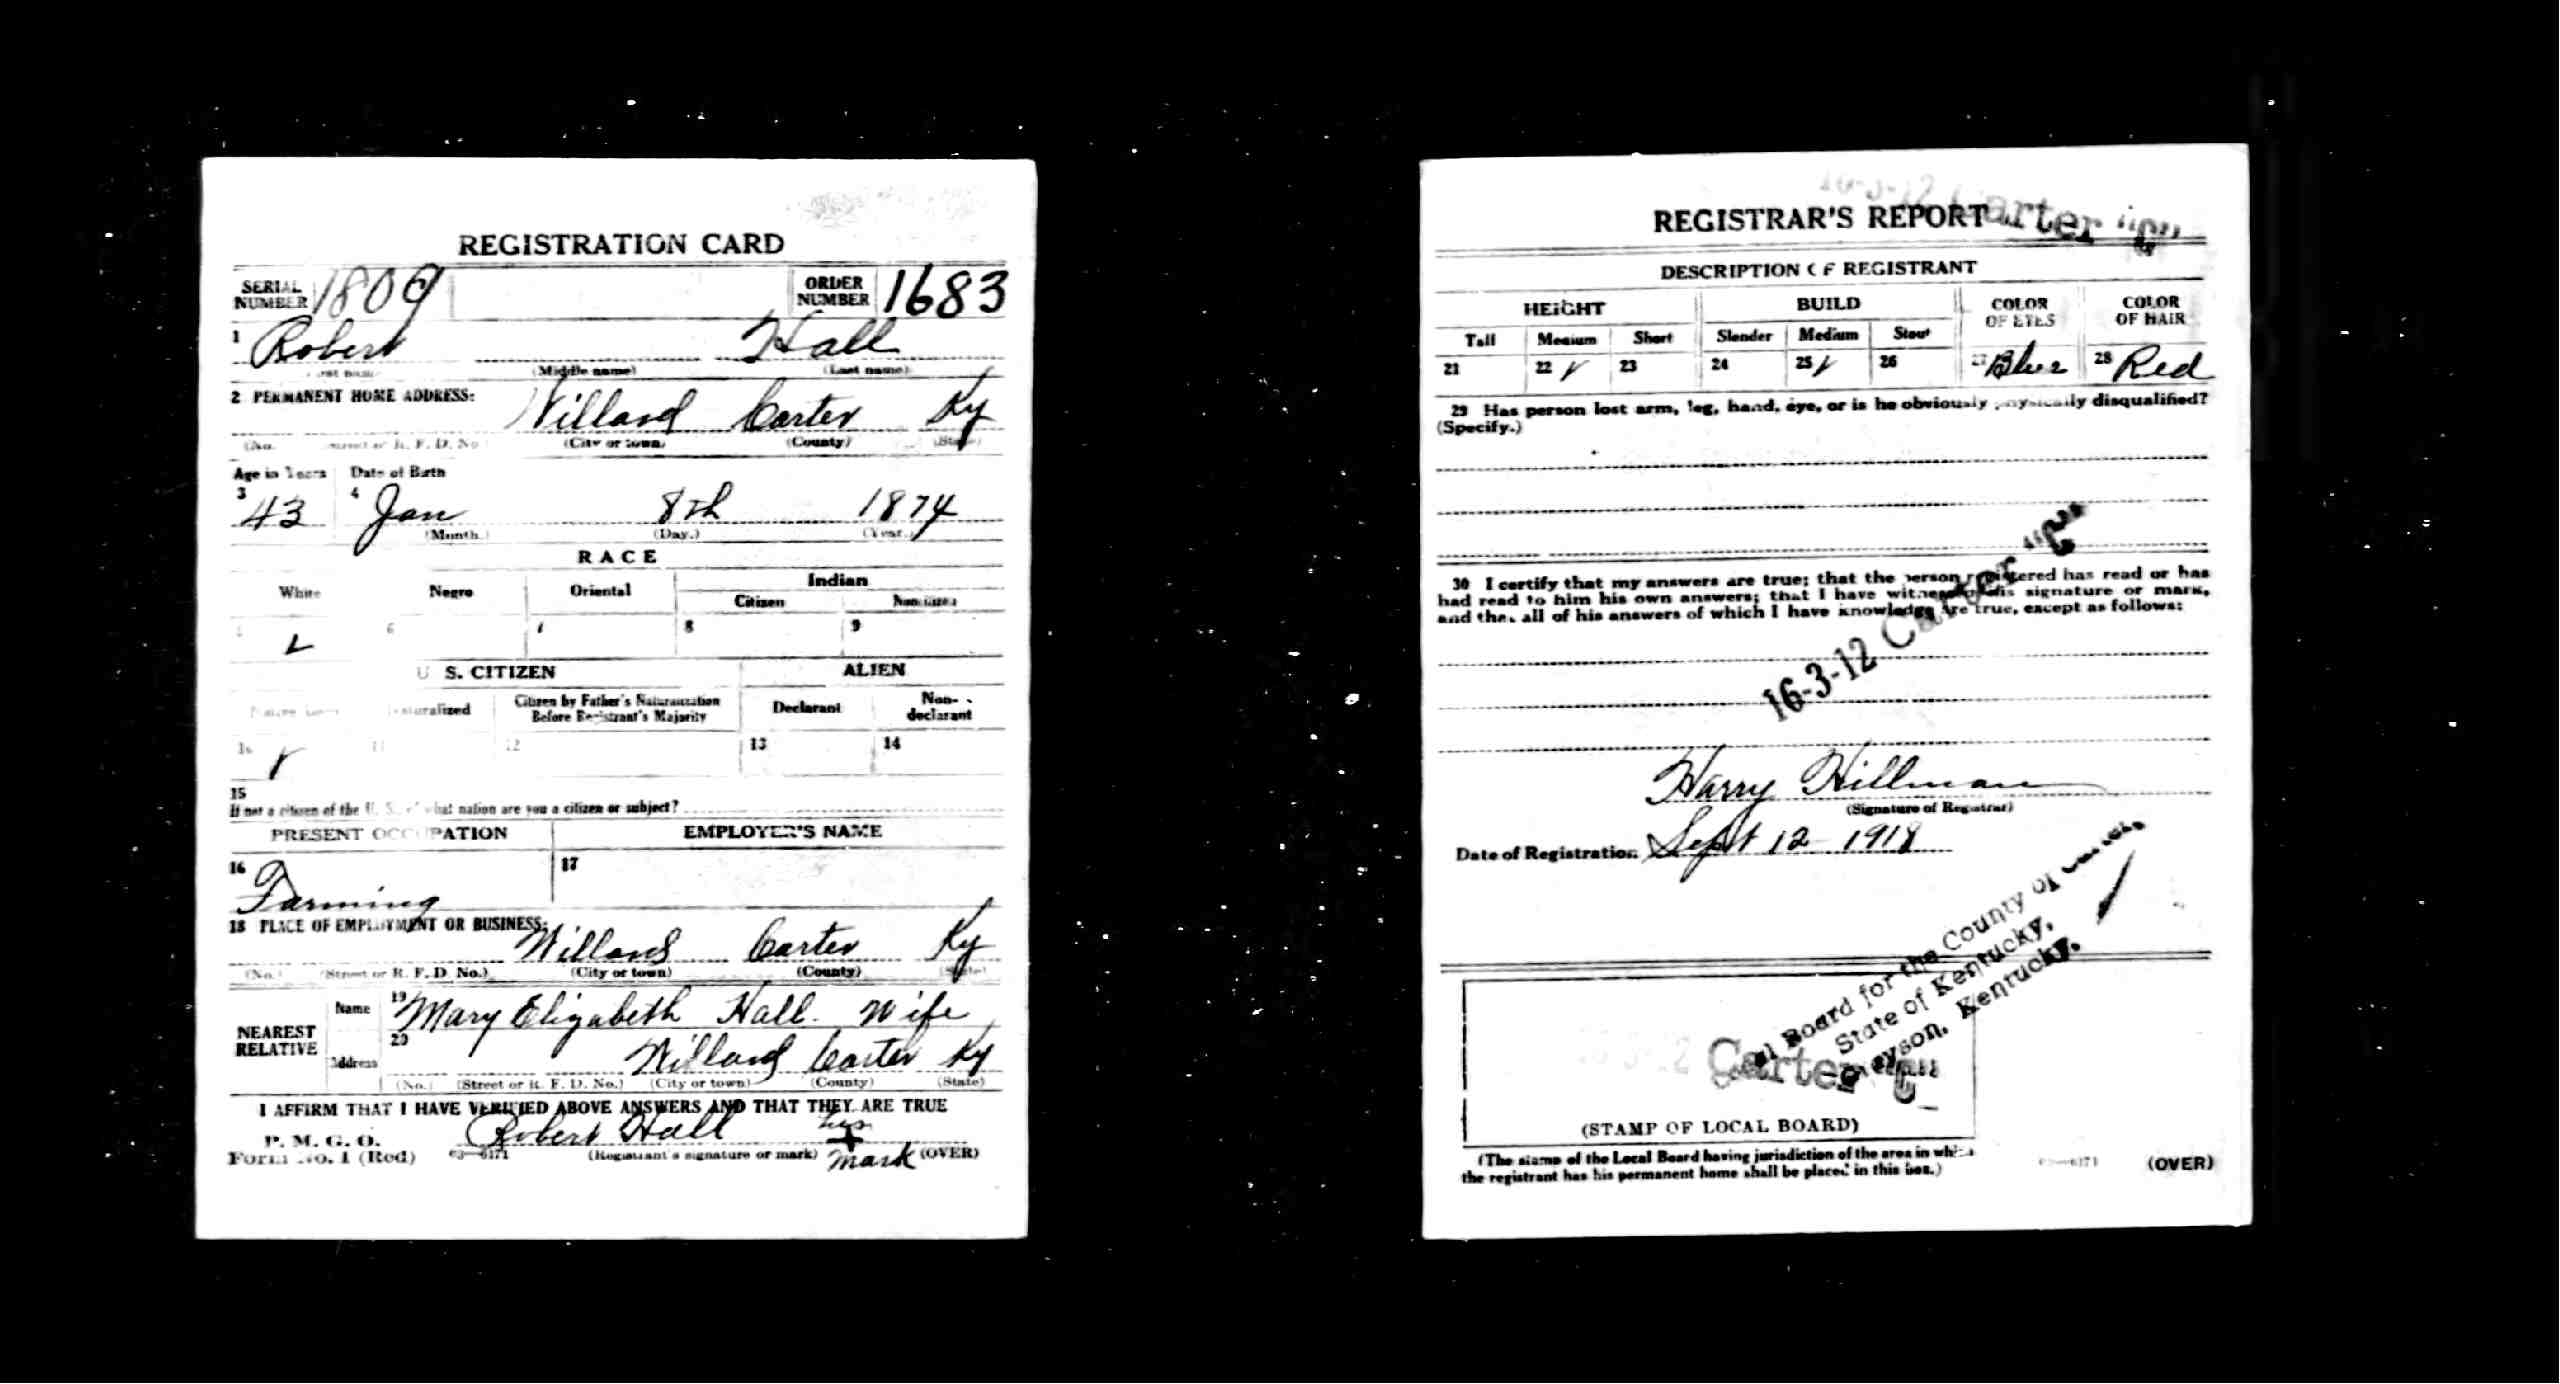 REGISTRATION CARD
SERIAL NUMBER 1809 ORDER NUMBER 1683
1 Robert Hall
(Middle name) (Last name)
2 PERMANENT HOME ADDRESS: Willard Carter Ky
(No. Street or R. F. D. No.) (City or town) (County) (State)
Age in Years Date of Birth
3 43 4 Jan 8th 1874
(Month.) (Day.) (Year.)
RACE
White Negro Oriental Indian
Citizen Noncitizen
6 7 8 9
U. S. CITIZEN ALIEN
Native Born Naturalized Citizen by Father's Naturalization Before Registrant's Majority Declarant Non-declarant
10 11 12 13 14
15
If not a citizen of the U. S., of what nation are you a citizen or subject?
PRESENT OCCUPATION EMPLOYER'S NAME
16 Farming 17
18 PLACE OF EMPLOYMENT OR BUSINESS: Willard Carter Ky
(No.) (Street or R. F. D. No.) (City or town) (County) (State)
NEAREST RELATIVE Name 19 Mary Elizabeth Hall. Wife
Address 20 Willard Carter Ky
(No.) (Street or R. F. D. No.) (City or town) (County) (State)
I AFFIRM THAT I HAVE VERIFIED ABOVE ANSWERS AND THAT THEY ARE TRUE
P. M. G. O.
Form No. 1 (Red) 03—6171 Robert Hall his + mark
(Registrant's signature or mark) (OVER)
16-3-12 Carter "C"
REGISTRAR'S REPORT
DESCRIPTION OF REGISTRANT
HEIGHT BUILD COLOR OF EYES COLOR OF HAIR
Tall Medium Short Slender Medium Stout
21 22 ✓ 23 24 25 ✓ 26 27 Blue 28 Red
29 Has person lost arm, leg, hand, eye, or is he obviously physically disqualified?
(Specify.)
30 I certify that my answers are true; that the person registered has read or has
had read to him his own answers; that I have witnessed his signature or mark,
and that all of his answers of which I have knowledge are true, except as follows:
16-3-12 Carter "C"
Harry Hillman
(Signature of Registrar)
Date of Registration Sept 12 - 1918
Local Board for the County of Carter,
State of Kentucky,
Grayson, Kentucky.
Carter "C"
(STAMP OF LOCAL BOARD)
(The stamp of the Local Board having jurisdiction of the area in which
the registrant has his permanent home shall be placed in this box.)
03—6171 (OVER)